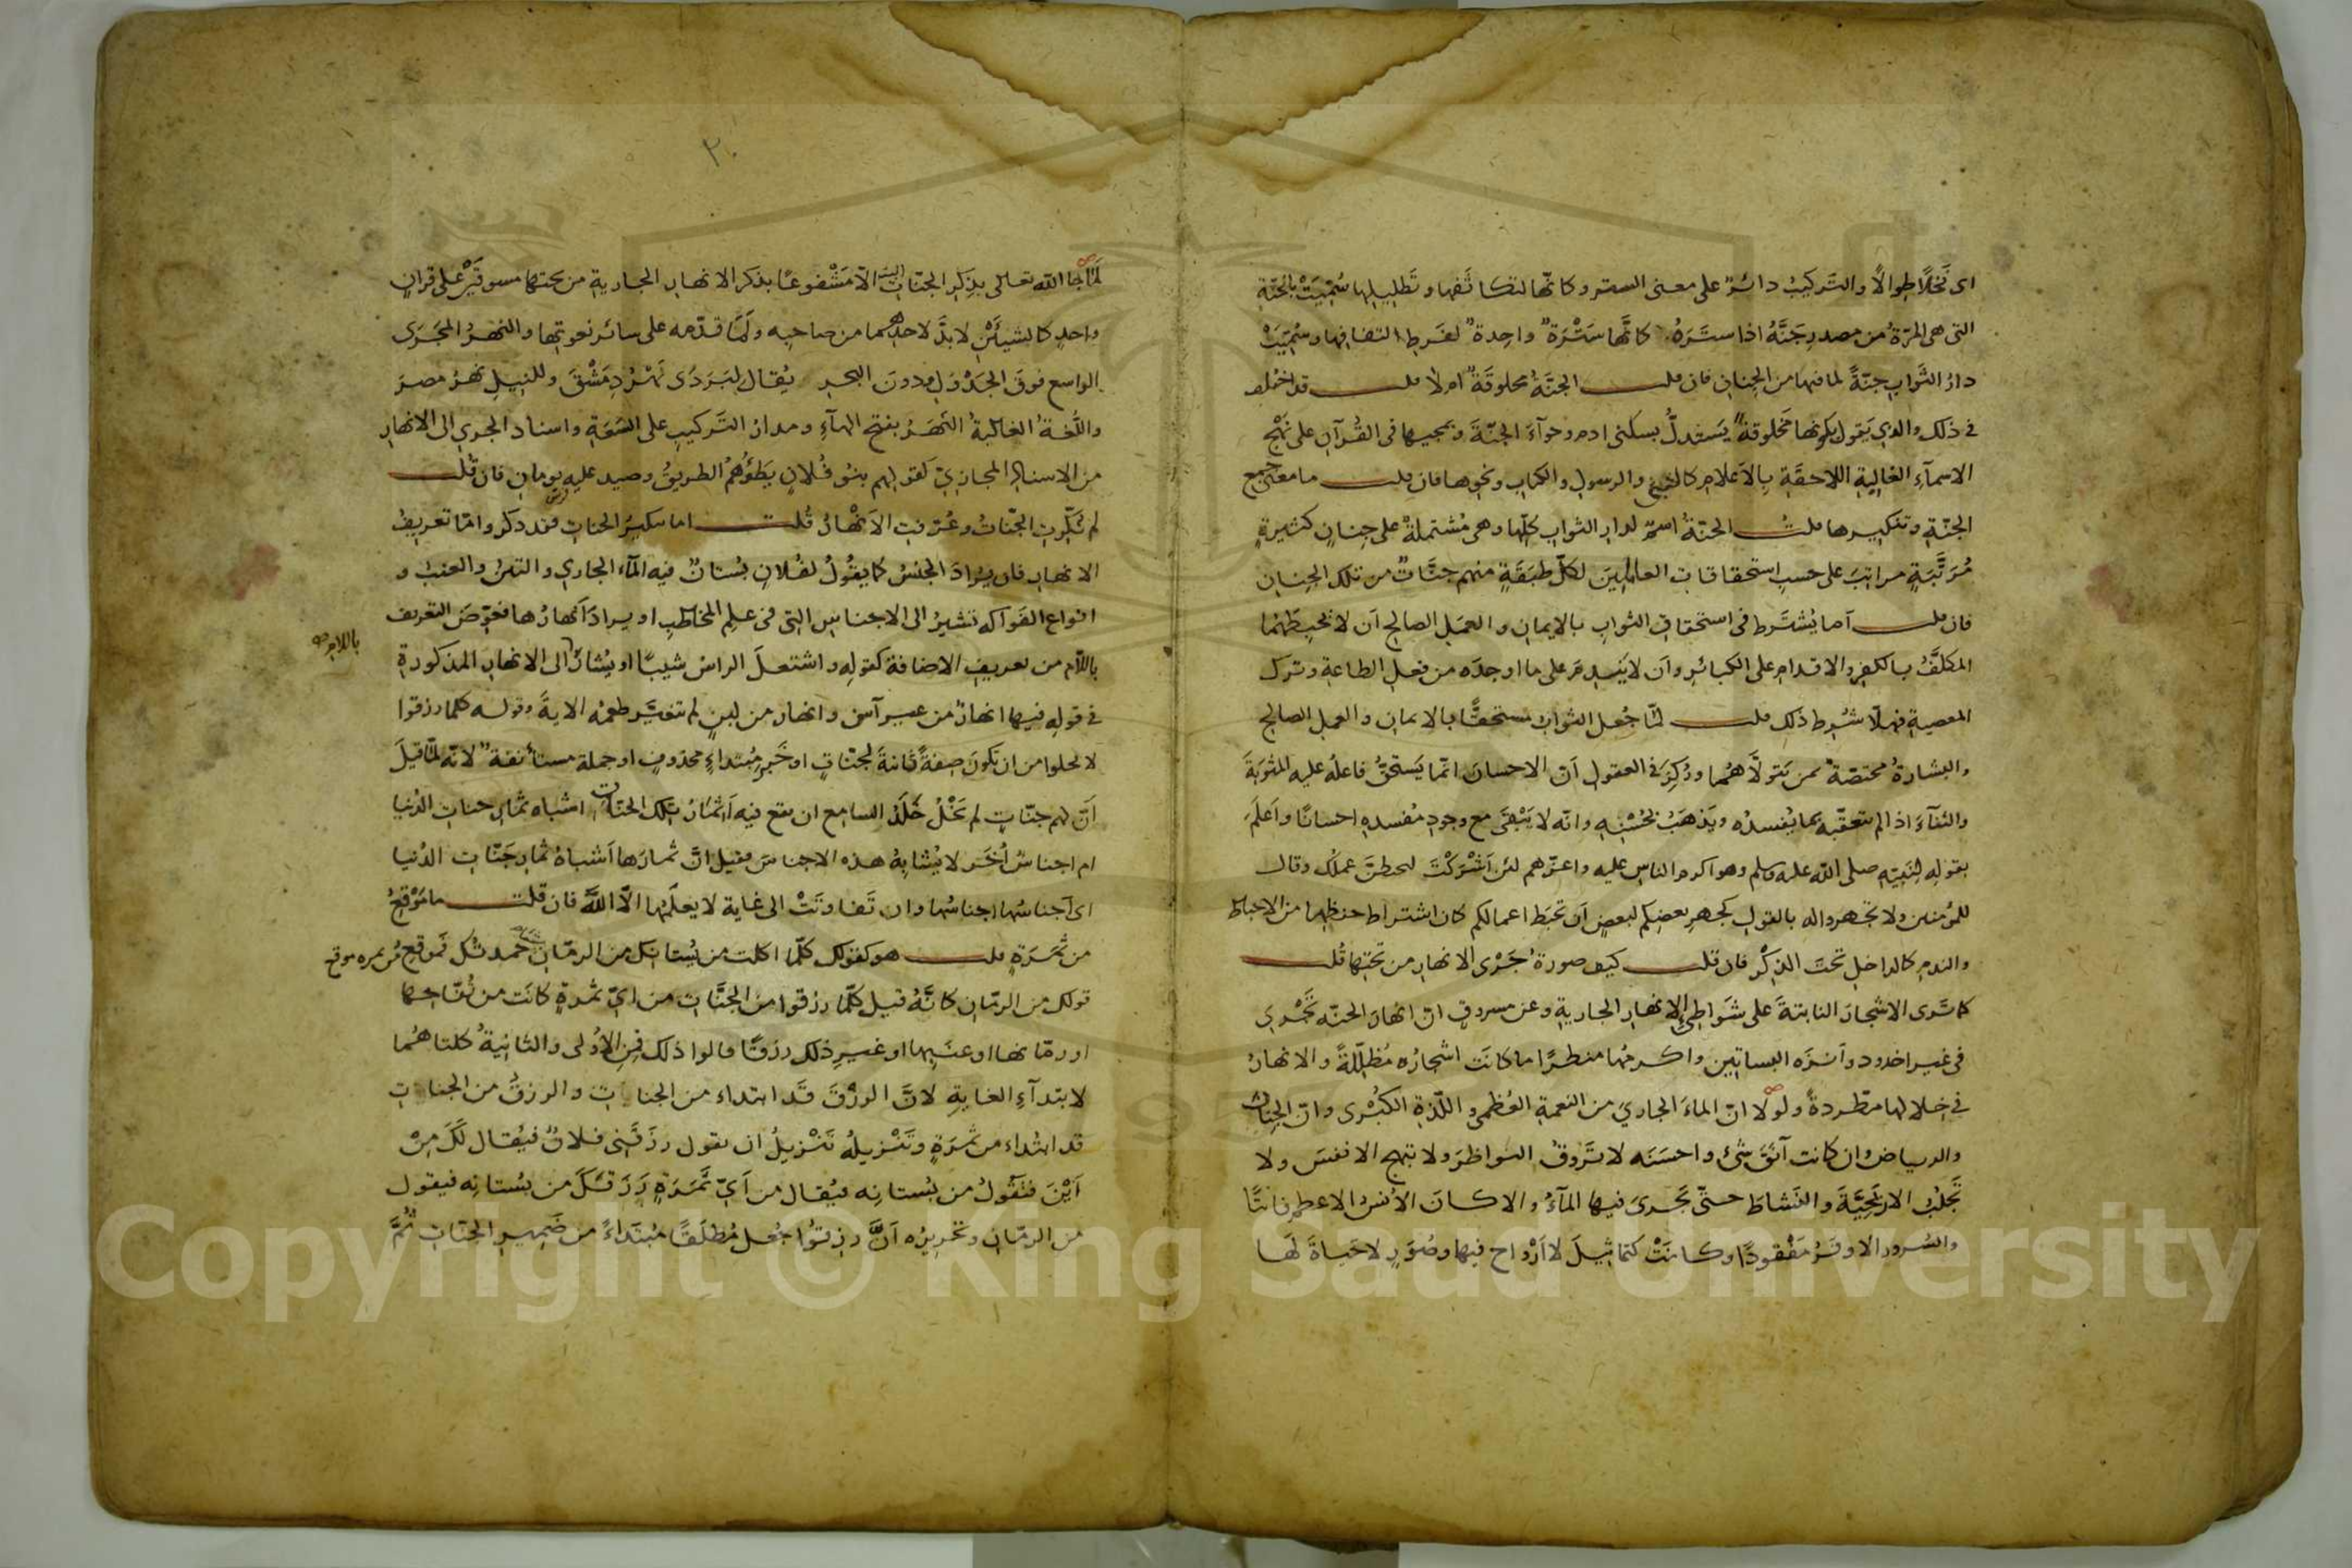 اى نَخْلًا طِوالًا والتَّركيبُ دائرٌ على معنى الستر وكانّها لتكاثفها وتَظليلها سُمّيَتْ بالجنّة
التى هى المرّة من مصدرِ جَنَّهُ اذا ستَرَهُ كانّها سَتْرَةٌ واحدةٌ لفَرطِ التفافها وسُمّيَتْ
دارُ الثَّوابِ جنّةً لما فيها من الجِنانِ فان قلت الجنّةُ مخلوقةٌ ام لا قلت قد اختُلِف
فى ذلك والذي يَقول بكونها مَخلوقةً يَستدلُّ بسكنى ادم وحوّآءَ الجنّةَ وبمجيئها فى القُرآن على نَهْج
الاسمآءِ الغالبةِ اللاحقَةِ بِالاَعلامِ كالنبيّ والرسول والكتاب ونحوها فان قلت ما معنى جمع
الجنّةِ وتنكيرها قلتُ الجنّةُ اسمٌ لدارِ الثوابِ كلّها وهى مُشتملةٌ على جِنانٍ كثيرةٍ
مُرَتَّبَةٍ مراتبَ على حسبِ استحقاقات العاملينَ لكلّ طبَقَةٍ منهم جنّاتٌ من تلك الجِنان
فان قلت اَما يُشتَرط فى استحقاق الثواب بالايمان والعمَلِ الصالح اَن لا يُحبِطَهما
المكلَّفُ بالكفر والاقدام على الكبائر واَن لا يَندمَ على ما اوجدَه من فعلِ الطاعةِ وترك
المعصيةِ فهلّا شُرِط ذلك قلت لمّا جُعل الثوابُ مستحقًّا بالايمان والعمل الصالح
والبشارةُ مختصّة بمن يَتولّاهُما ورُكِزَ فى العقول اَنّ الاحسانَ انّما يَستحقُّ فاعلُه عليه المثوبَةَ
والثنآءَ اذا لم يتعقّبه بما يُفسدُه ويَذهَبُ بحُسْنِه وانّه لا يَبْقَى مع وجودِ مُفسدِه احسانًا واَعلَم
بقولِه لِنَبيّه صلى الله عليه وسلم وهو اكرم الناس عليه واعزّهم لئن اَشْرَكْتَ ليحبطنّ عملُك وقال
للمؤمنين ولا تجهروا له بالقول كجهرِ بعضِكم لبعضٍ اَن تحبَط اعمالكم كان اشتراط حفظهما من الاحباط
والندمِ كالداخلِ تحتَ الذِكْر فان قلت كيف صورةُ جَرْى الانهارِ من تحتِها قُلت
كما تَرى الاشجارَ النابتةَ على شَواطِئ الانهارِ الجاريةِ وعن مسروقٍ انّ انهارَ الجنّه تَجْرى
فى غير اخدود واَنزَه البساتين واكرمُها منظرًا ما كانَت اشجارُه مُظلّلةً والانهارُ
فى خِلالها مطّردةً ولولا انّ الماءَ الجارىَ من النعمةِ العُظمى واللّذةِ الكبْرى وانّ الجنان
والرياض وان كانت آنَقَ شئ واحسَنَه لا تَروقُ النواظرَ ولا تبهج الانفسَ ولا
تَجلُبُ الاريَحيّةَ والنَشاطَ حتّى تَجرىَ فيها المآءُ والا كانَ الاُنسُ الاعظم فائتًا
والسُرور الاوفَرُ مَفْقودًا وكانَتْ كتماثيلَ لا اَرْواح فيها وصُوَرٍ لا حَياةَ لَها
٢٠
لَمَا جاالله تعالى بذِكرِ الجنّاتِ البتة الّا مَشْفوعًا بذكر الانهار الجاريةِ من تحتها مسوقَيْنِ على قرانٍ
واحدٍ كالشيئَيْنِ لابدَّ لاحدِهما من صاحبِه ولَمّا قدّمه على سائر نعوتِها والنهرُ المجَرَى
الواسع فوقَ الجَدْوَل ودونَ البحر يُقال لِبَرَدَى نَهْرُ دِمَشْقَ وللنيل نهرُ مصرَ
واللُّغةُ الغالبةُ النَّهَرُ بفتح الهآءِ ومدارُ التَركيبِ على السَعَةِ واسنادُ الجري الى الانهار
من الاسنادِ المجازىِّ كقولهم بنُو فُلانٍ يَطَؤُهُمُ الطريقُ وصِيد عليه يومان فان قُلت
لم نُكّرتِ الجنّاتُ وعُرّفتِ الاَنْهارُ قُلت اما تنكيرُ الجنات فقد ذكر وامّا تعريفُ
الانهارِ فان يرادَ الجنسُ كما يقُولُ لفُلانٍ بُستانٌ فيه المآء الجارى والتينُ والعنبُ و
انواع الفَواكه تشيرُ الى الاجناسِ التى فى علمِ المخاطب او يرادَ اَنهارُها فعَوّضَ التعريف
باللام صح
باللّام من تعريف الاضافة كقولِه واشتعلَ الراسُ شيبًا او يُشارَ الى الانهار المذكورة
فى قوله فيها انهارٌ من غير آسن وانهار من لبنٍ لم يتغيّر طعمُه الايةَ وقوله كلما رزقوا
لا يخلوا من ان تكونَ صِفةً ثانيةً لجنّاتٍ او خَبرِ مُبتداءٍ محذوفٍ او جملة مستأنفة لانّه لمّا قيلَ
اَنّ لهم جنّاتٍ لم يَخْلُ خَلَدُ السامع ان يقع فيه اَثمارُ تلك الجنّات اشباه ثمارِ جنات الدُنيا
ام اجناسٌ اُخَر لا يُشابِهُ هذه الاجناسَ فقيل انّ ثمارَها اَشباهُ ثمار جَنّات الدُنيا
اى اَجناسُها اجناسُها وان تَفاوتَتْ الى غايةٍ لا يعلَمُها الّا اللهُ فان قلت ما مَوْقعُ
من ثمَرَةٍ قلت هو كقولك كلّما اكلت من بُستانِك من الرمّان حمدتُك فمَوقع من ثمره موقع
قولك من الرمّان كانَّهُ قيل كلّما رزقوا من الجَنَّاتِ من اىّ ثمرةٍ كانَت من تُفّاحِها
او رمّانها او عنَبِها او غيرِ ذلك رزقًا قالوا ذلك فمِنِ الاُولى والثانيةُ كلتاهُما
لابتدآءِ الغايةِ لانّ الرزقَ قَد ابتداء من الجنات والرزقُ من الجنات
قد ابتُداء من ثمرَةٍ وتَنْزيلُه تَنْزيلُ ان يقول رزَقَنى فلانٌ فيُقال لَكَ مِنْ
اَيْنَ فتقُولُ من بُستانِه فيُقال من اَىّ ثمَرَةٍ رَزَقَكَ من بُستانِه فيقول
من الرمّان وتحريرُه اَنَّ رزقوا جُعل مُطلَقًا مُبتَداءً من ضَمِيرِ الجنّاتِ ثُمَّ
Copyright © King Saud University